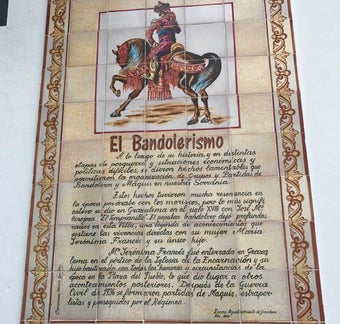 El Bandolerismo
A lo largo de su historia, y en distintas
etapas de posguerra y situaciones económicas y
políticas difíciles, se dieron hechos lamentables que
permitieron la organización de Grupos o Partidas de
Bandoleros y Maquis en nuestra Serranía.
Estos hechos tuvieron mucha resonancia en
la época por con los moriscos, pero lo más signifi
cativo se dio en Grazalema en el siglo XVIII con José Mª
Hinojosa "El Tempranillo". El popular bandolero dejó profundas
raíces en esta Villa, una leyenda de acontecimientos que
sostiene las vivencias directas con su mujer María
Jerónima Francés y su único hijo.
Mª Jerónima Francés fue enterrada en Graza
lema en el pórtico de la Iglesia de la Encarnación y su
hijo bautizado con todos los honores y circunstancias de la
época en la Plaza del Pueblo, lo que dio lugar a otros
acontecimientos posteriores. Después de la Guerra
Civil de 1936 se formaron partidas de Maquis, extraperlis
tas y perseguidos por el Régimen.
Excmo. Ayuntamiento de Grazalema